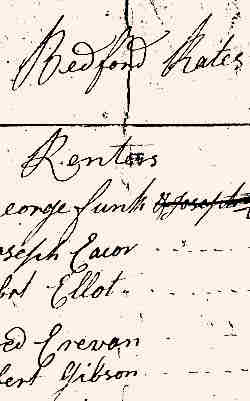 Bedford Rates
Renters
eorge Funk & Joseph
oseph Eacor
brt Ellot
ed Crevan
bert Gibson